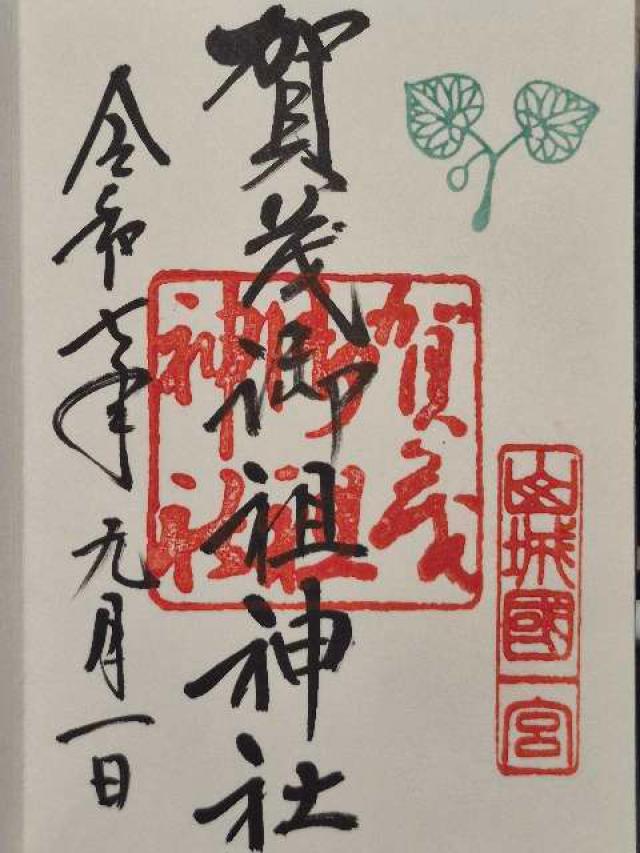 山城國一宮
賀茂御祖神社
賀茂
御祖
神社
令和七年元月一日